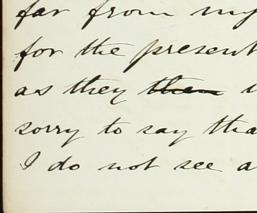 far from my
for the present
as they then
sorry to say tha
I do not see a